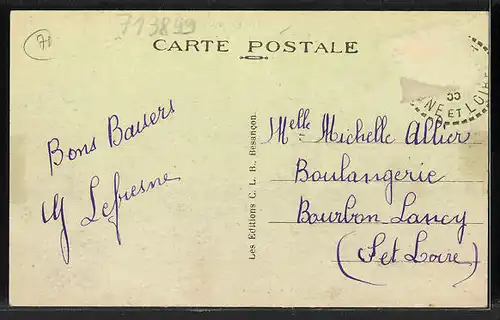 713899
71
CARTE POSTALE
NE ET LOIRE
Bons Baisers
Lefresne
Les Editions C. L. B., Besançon.
Melle Michelle Allier
Boulangerie
Bourbon-Lancy
(S et Loire)